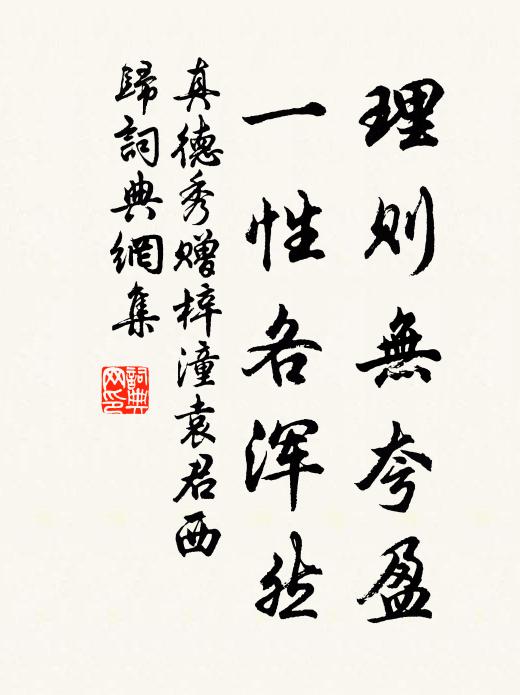 理則無夸盈
一性各浑然
真德秀赠梓潼袁君西
歸詞典網集
詞典网印